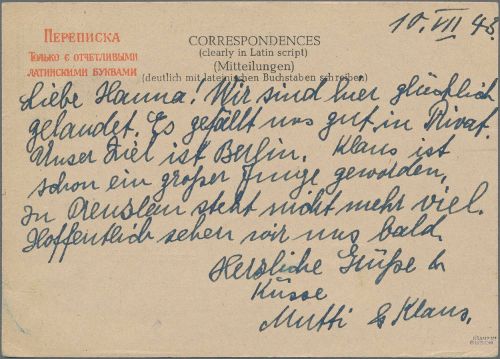 Переписка
Только с отчетливыми
латинскими буквами
CORRESPONDENCES
(clearly in Latin script)
(Mitteilungen)
(deutlich mit lateinischen Buchstaben schreiben)
10. VII 48.
Liebe Hanna! Wir sind hier glücklich
gelandet. Es gefällt uns gut in Privat.
Unser Ziel ist Berlin. Klaus ist
schon ein großer Junge geworden,
In steht nicht mehr viel.
Hoffentlich sehen wir uns bald.
Herzliche Grüße &
Küsse
Mutti & Klaus.